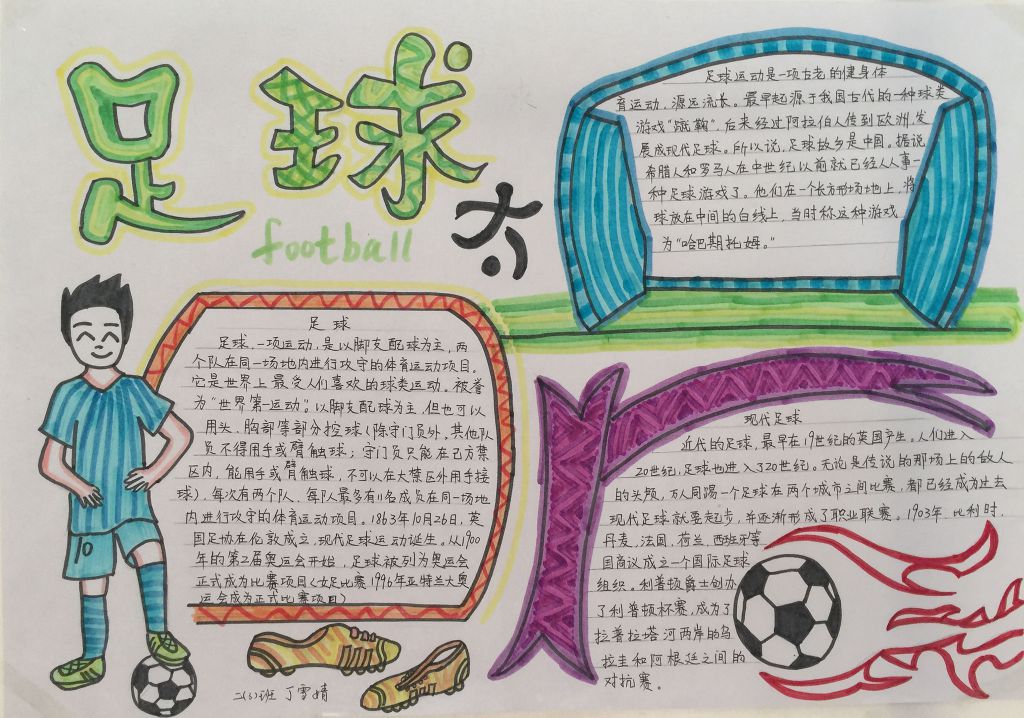 足球
football
足球运动是一项古老的健身体
育运动，源远流长。最早起源于我国古代的一种球类
游戏“蹴鞠”，后来经过阿拉伯人传到欧洲，发
展成现代足球。所以说，足球故乡是中国。据说，
希腊人和罗马人在中世纪以前就已经从人事一
种足球游戏了。他们在一个长方形场地上，将
球放在中间的白线上，当时称这种游戏
为“哈巴期托姆。”
足球
足球，一项运动，是以脚支配球为主，两
个队在同一场地内进行攻守的体育运动项目。
它是世界上最受人们喜欢的球类运动。被誉
为“世界第一运动”。以脚支配球为主，但也可以
用头、胸部等部分控球（除守门员外，其他队
员不得用手或臂触球；守门员只能在己方禁
区内，能用手或臂触球，不可以在大禁区外用手接
球），每次有两个队，每队最多有11名成员在同一场地
内进行攻守的体育运动项目。1863年10月26日，英
国足协在伦敦成立，现代足球运动诞生。从1900
年的第2届奥运会开始，足球被列为奥运会
正式成为比赛项目（女足比赛1996年亚特兰大奥
运会成为正式比赛项目）
现代足球
近代的足球，最早在19世纪的英国产生，人们进入
20世纪，足球也进入了20世纪。无论是传说的那场上的敌人
的头颅，万人同踢一个足球在两个城市之间比赛，都已经成为过去
现代足球就要起步，并逐渐形成了职业联赛。1903年，比利时，
丹麦、法国、荷兰、西班牙等
国商议成立一个国际足球
组织。利普顿爵士创办
了利普顿杯赛，成为了
拉普拉塔河两岸的乌
拉圭和阿根廷之间的
对抗赛。
10
二(5)班 丁雪婧